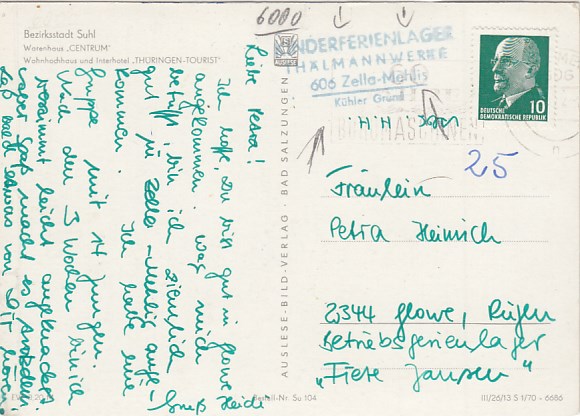 Bezirksstadt Suhl
Warenhaus „CENTRUM"
Wohnhochhaus und Interhotel „THÜRINGEN-TOURIST"
6000
Liebe Petra!
Ich hoffe, Du bist gut in Glowe
angekommen. Was mich
betrifft, bin ich ziemlich
gut in Zella-Mehlis ange-
kommen. Ich habe eine
Gruppe mit 14 Jungen.
Nach den 3 Wochen bin ich
bestimmt leicht angeknackst,
aber Spaß macht es trotzdem.
Laß mal etwas von Dir hören!
Gruß Heidi
AUSLESE-BILD-VERLAG · BAD SALZUNGEN
KINDERFERIENLAGER
THÄLMANNWERKE
606 Zella-Mehlis
Kühler Grund
DEUTSCHE
DEMOKRATISCHE REPUBLIK
10
25
Fräulein
Petra Heinrich
2344 Glowe, Rügen
Betriebsferienlager
„Fiete Jansen"
Bestell-Nr. Su 104
III/26/13 S 1/70 - 6686